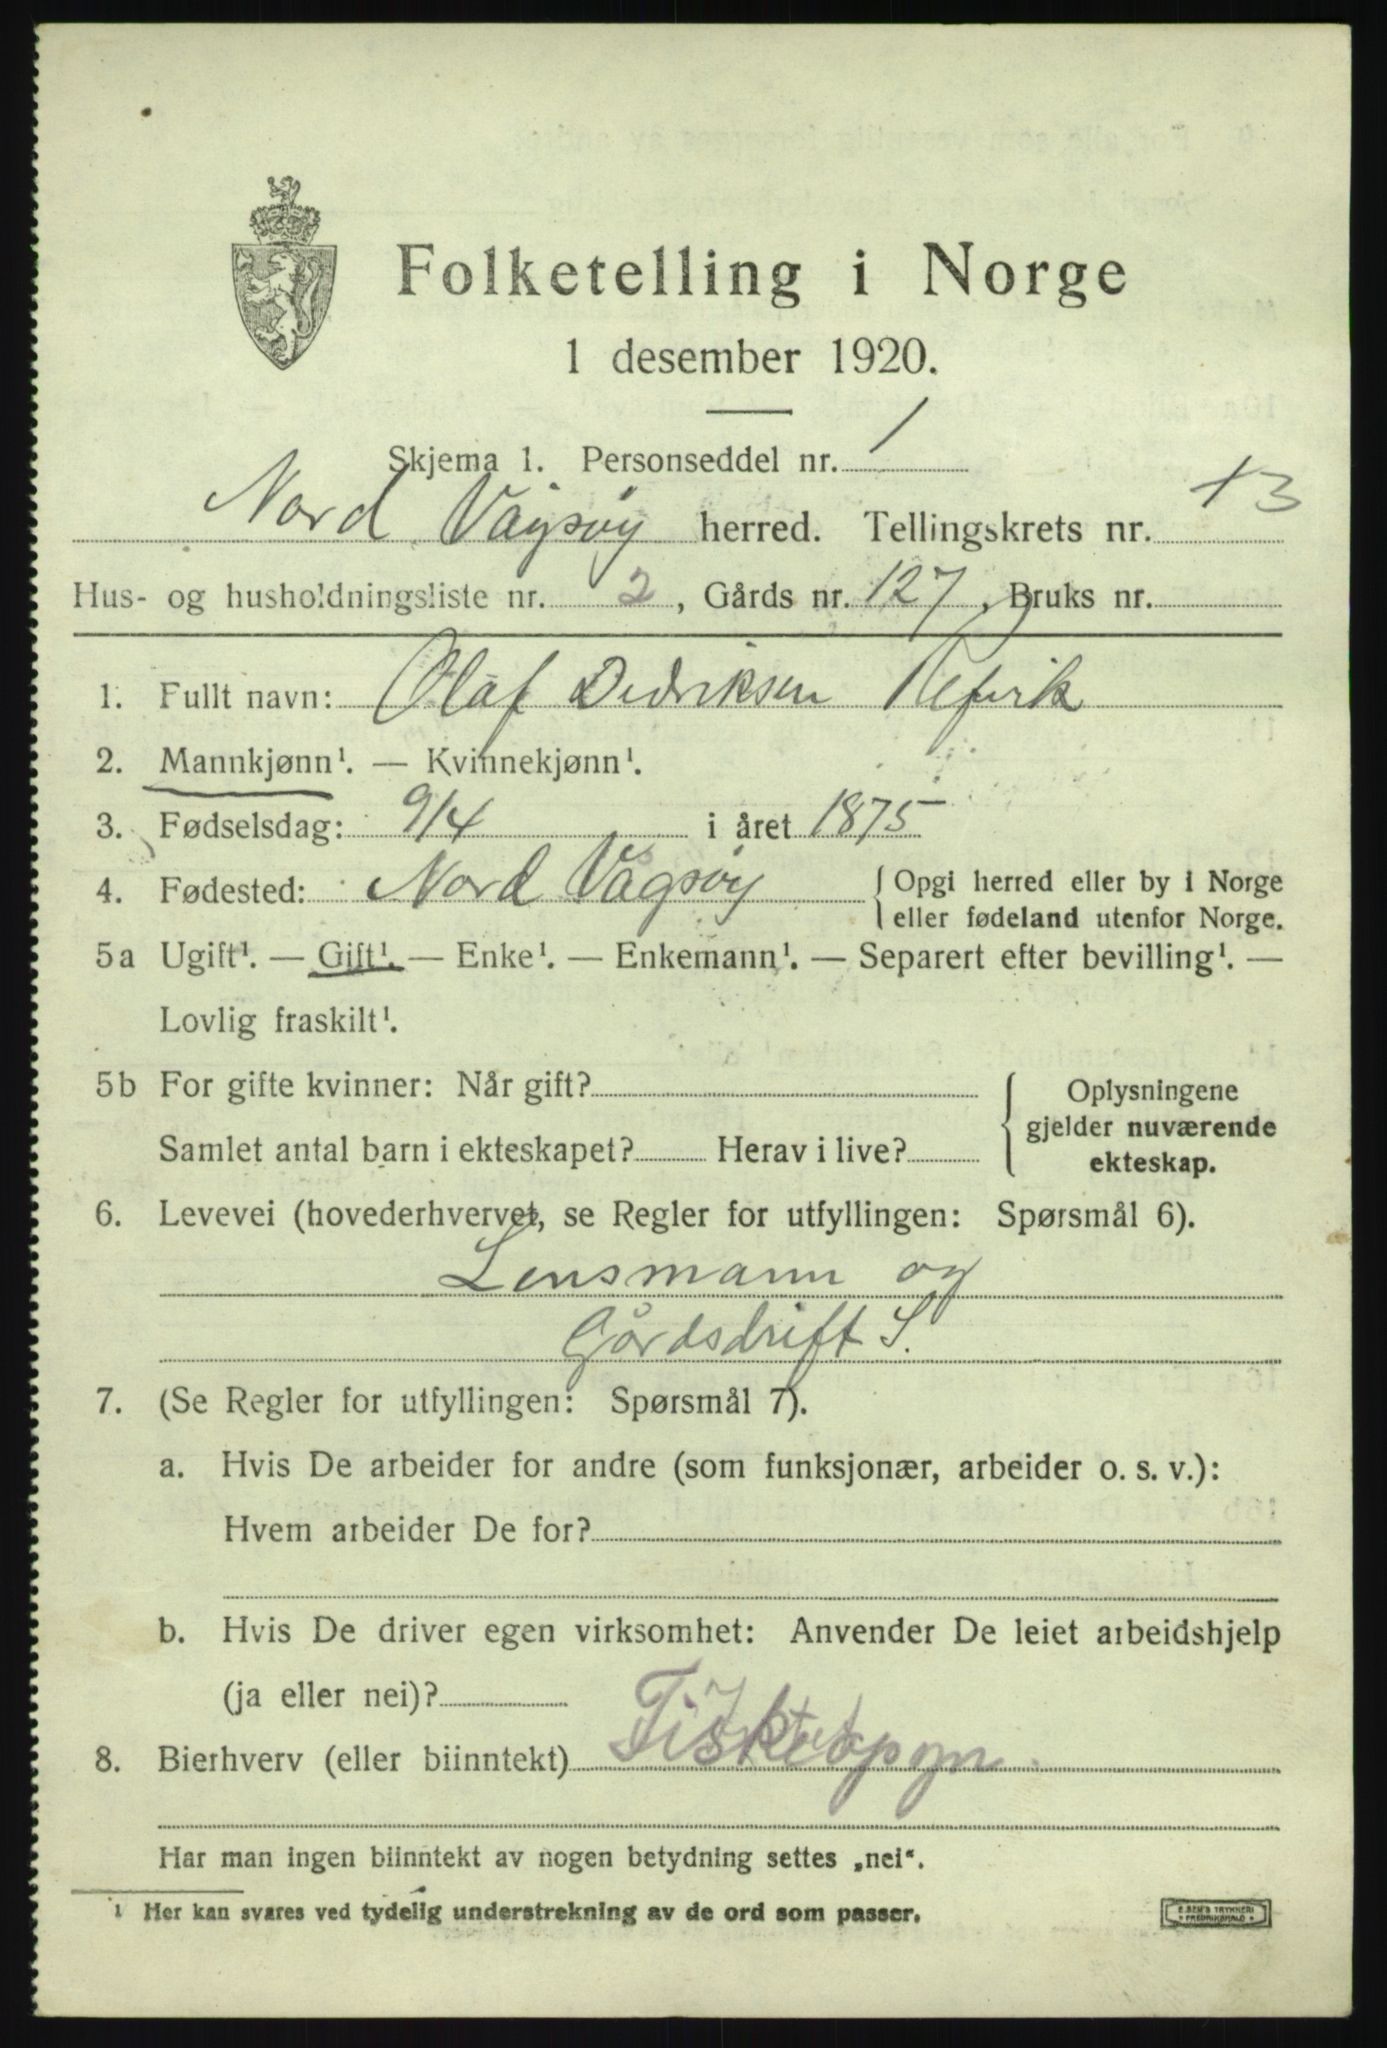 Folketelling i Norge
1 desember 1920.
Skjema 1. Personseddel nr. 1
Nord Vågsøy herred. Tellingskrets nr. 13
Hus- og husholdningsliste nr. 2, Gårds nr. 127, Bruks nr.
1. Fullt navn: Olaf Didriksen Refvik
2. Mannkjønn¹. — Kvinnekjønn¹.
3. Fødselsdag: 9/4 i året 1875
4. Fødested: Nord Vågsøy {Opgi herred eller by i Norge
eller fødeland utenfor Norge.
5a Ugift¹. — Gift¹. — Enke¹. — Enkemann¹. — Separert efter bevilling¹. —
Lovlig fraskilt¹.
5b For gifte kvinner: Når gift? { Oplysningene
gjelder nuværende
Samlet antal barn i ekteskapet? Herav i live?
ekteskap.
6. Levevei (hovederhvervet, se Regler for utfyllingen: Spørsmål 6).
Lensmann og
Gårdsdrift S.
7. (Se Regler for utfyllingen: Spørsmål 7).
a. Hvis De arbeider for andre (som funksjonær, arbeider o. s. v.):
Hvem arbeider De for?
b. Hvis De driver egen virksomhet: Anvender De leiet arbeidshjelp
(ja eller nei)?
8. Bierhverv (eller biinntekt)
Har man ingen biinntekt av nogen betydning settes „nei“.
¹ Her kan svares ved tydelig understrekning av de ord som passer.